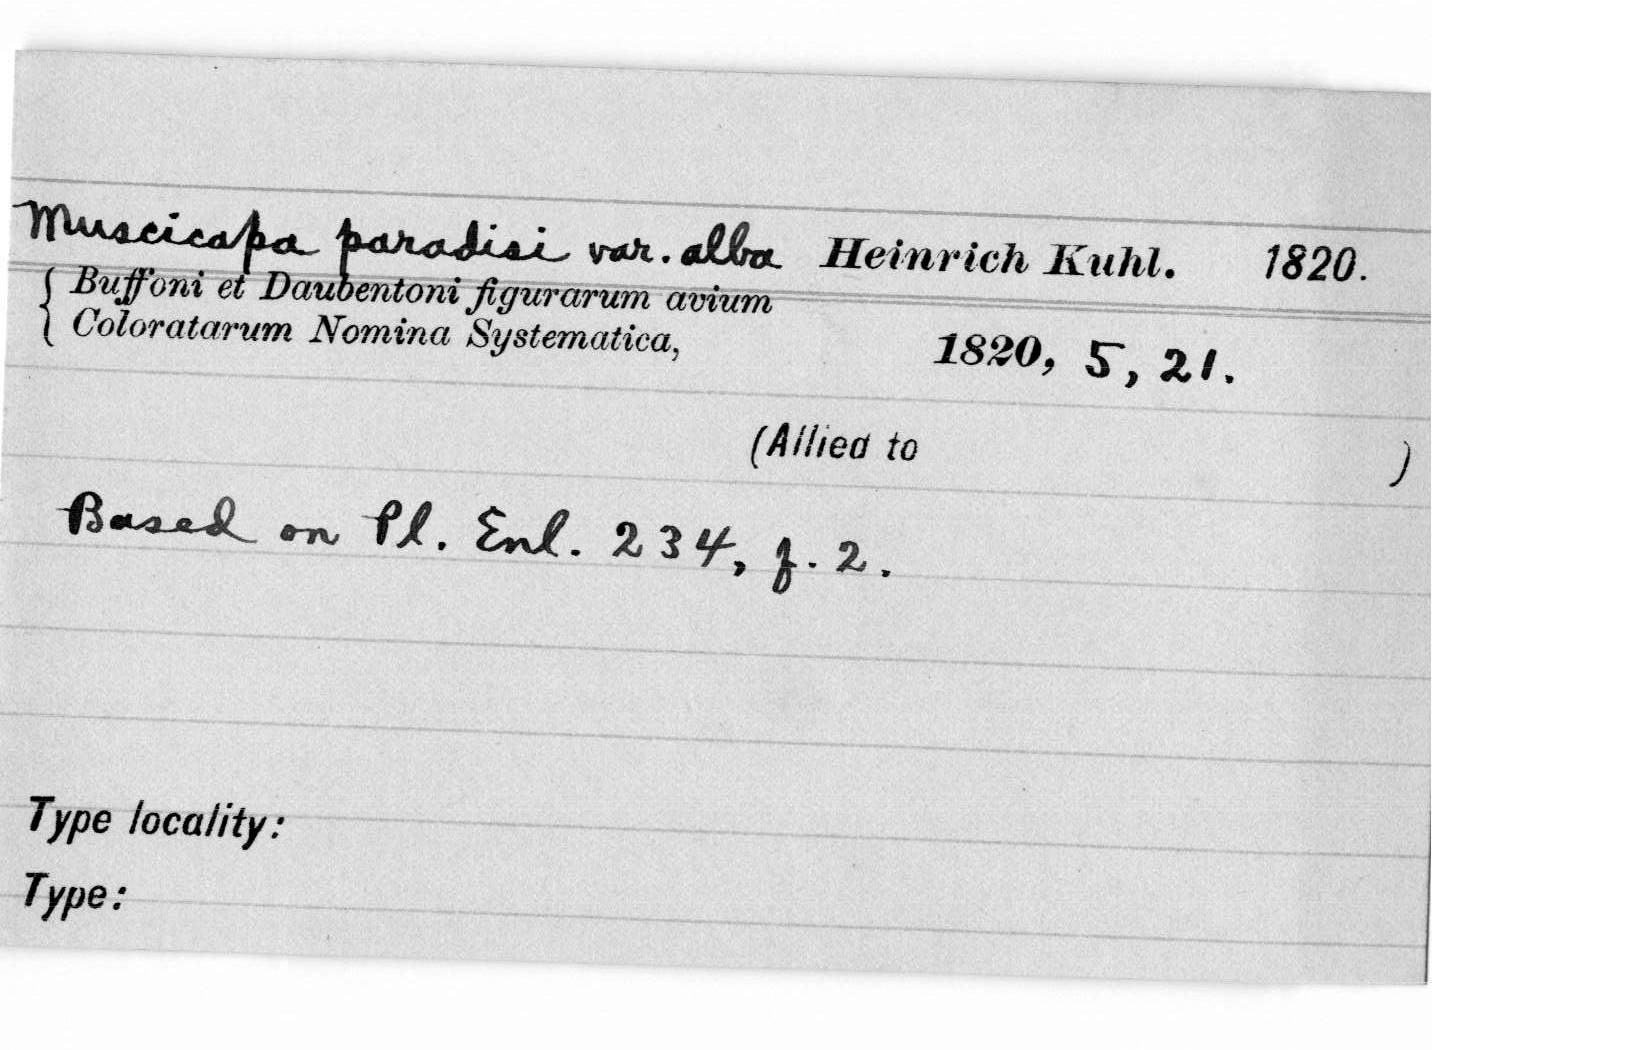 Muscicapa paradisi var. alba Heinrich Kuhl. 1820.
Buffoni et Daubentoni figurarum avium
Coloratarum Nomina Systematica, 1820, 5, 21.
(Allied to )
Based on Pl. Enl. 234, f. 2.
Type locality:
Type: